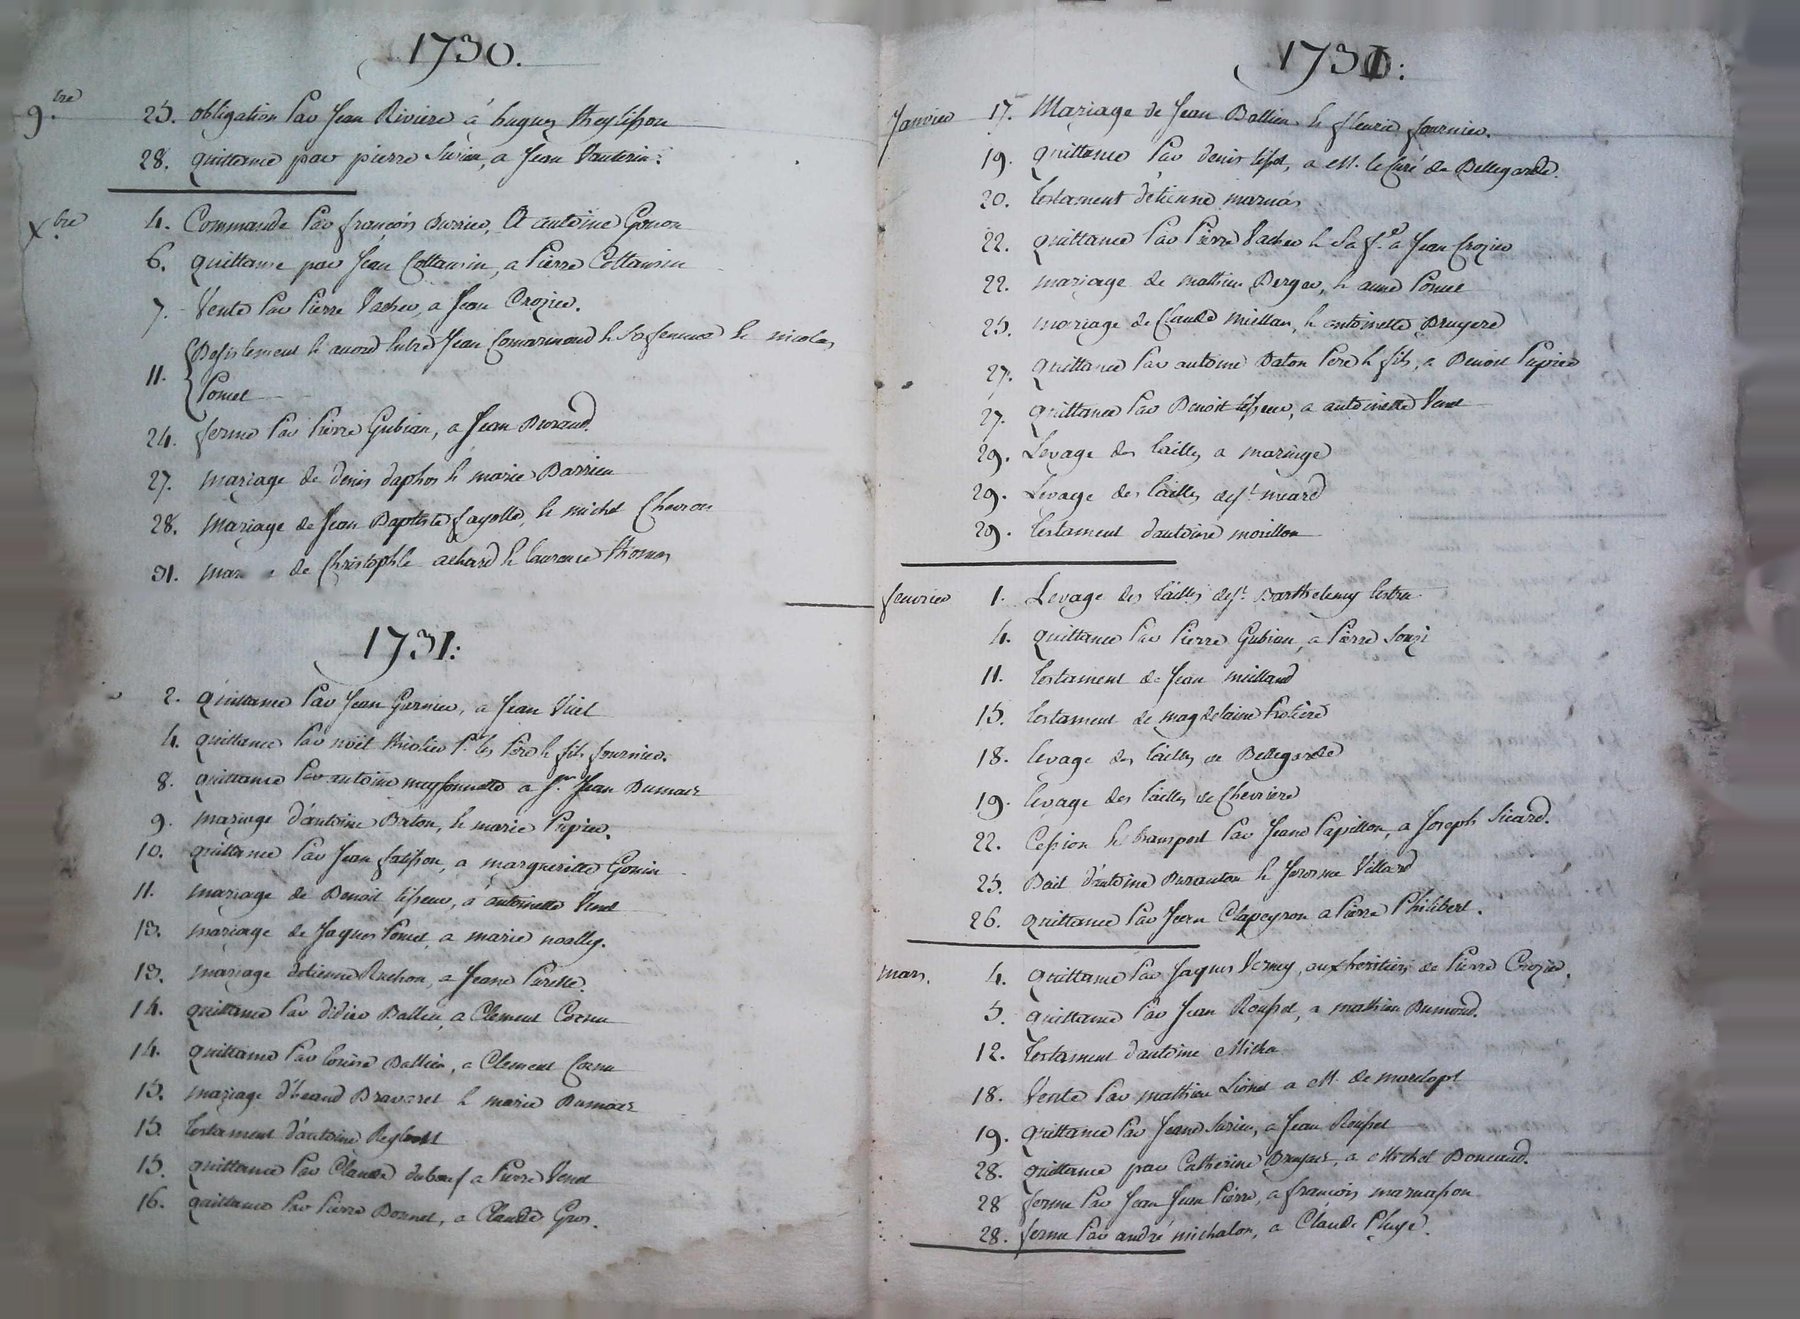 1730.
9.bre 25. obligation par Jean Riviere à hugues theylisson
28. quittance par pierre Surieu, a Jean Vauterin.
Xbre 4. Commande par françois Durrieu, a antoine Gonon
6. quittance par Jean Cottancin, a Pierre Cottancin
7. Vente par Pierre Vacher, a Jean Crozier.
Desistement et acord entre Jean Comarmond et sa femme et nicolas
11.
Poncet
24. ferme par Pierre Gubian, a Jean Durand.
27. mariage de denis daphos et marie Barrieu
28. Mariage de Jean Baptiste fayolle, et michel Chevron
31. mar e de Christophle achard et laurence thomas
1731:
2. quittance par Jean Garnier, a Jean Viel
4. quittance par noël thiolier pr. les Père et fils fournier.
8. quittance par antoine meyssonnette a Sr. Jean Dumas
9. mariage d'antoine Baton, et marie Pupier.
10. quittance par Jean falisson, a margueritte Gonin
11. mariage de Benoit tisseur, a antoinette Venet
13. mariage de Jaques Poncet, a marie noally.
13. mariage d'etienne Ruchon, a Jeane Pirelle.
14. quittance par didier Ballieu, a Clement Cornu
14. quittance par louise Ballieu, a Clement Cornu
15. mariage d' Bravaret et marie Dumas
15. testament d'antoine
15. quittance par Claude duboeuf a Pierre Venet
16. quittance par Pierre Bonnet, a Claude Gros.
1731:
Janvier 17. Mariage de Jean Ballieu et fleurie fournier.
19. quittance par denis tisot, a M. le Curé de Bellegarde.
20. testament d'etienne marnas
22. quittance par Pierre Vacher et sa fe. a Jean Crozier
22. mariage de mathieu Berger, et anne Poncet
25. mariage de Claude Millan, et antoinette Bruyere
27. quittance par antoine Baton Pere et fils, a Benoit Pupier
27. quittance par Benoit tisseur, a antoinette Venet
29. Levage des tailles a maringe
29. Levage des tailles de St. medard
29. testament d'antoine morillon
fevrier 1. Levage des tailles de St. Barthelemy lestra
4. quittance par Pierre Gubian, a Pierre Souzi
11. testament de Jean milland
15. testament de magdelaine Protiere
18. levage des tailles de Bellegarde
19. levage des tailles de Chevriere
22. Cession et transport par Jeane Papillon, a Joseph Sicard.
25. Bail d'antoine Duranton et Jerosme Villard
26. quittance par Jean Clapeyron a Pierre Philibert.
mars. 4. quittance par Jaques Verney, aux heritiers de Pierre Crozier.
5. quittance par Jean Rousset, a mathieu Dumond.
12. testament d'antoine Micha
18. Vente par mathieu Lionet a M. de
19. quittance par Jeane Surieu, a Jean Rousset
28. quittance par Catherine a Michel Boncaud.
28 ferme par Jean Jean Pierre, a francois marnasson
28. ferme par andré michalon, a Claude Pluye.